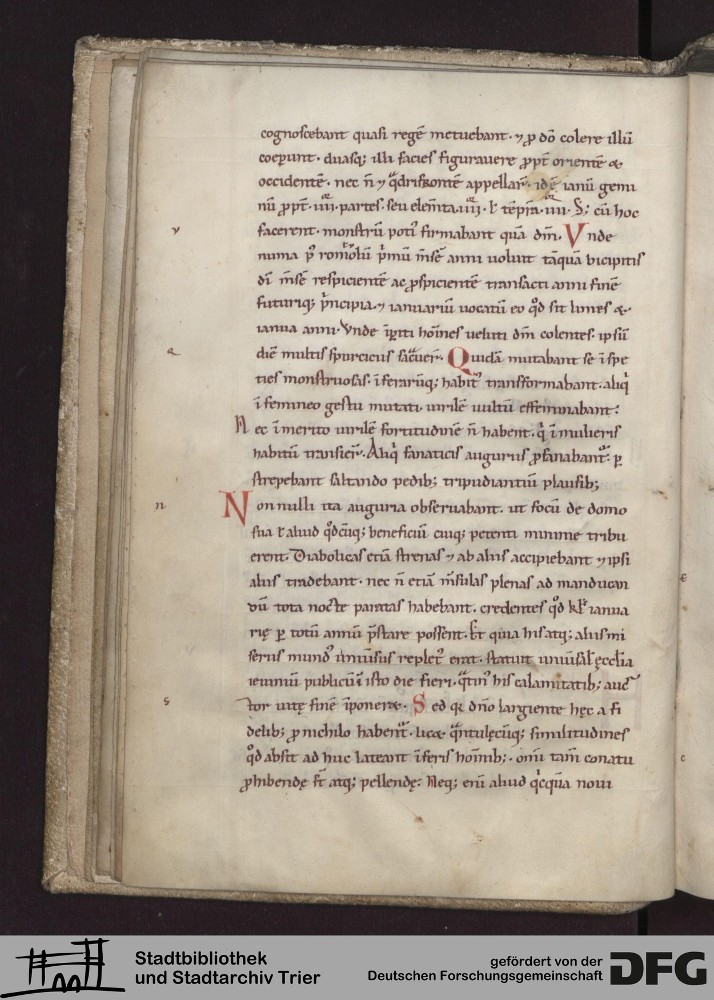 cognoscebant quasi regē metuebant · ⁊ ꝓ dō colere illū
coeperunt · duasq; illi facies figurauere ꝓpt̄ orientē &
occidentē · nec n̄ ⁊ q̄drifrontē appellar̄ · idē ianū gemi
nū ꝓpt̄ · iiii · partes · seu elem̄ta · iiii · ł tēp̄ra · iiii · S; cū hoc
facerent · monstrū poti' firmabant quā dm̄ · Vnde
v
numa p' romolū p̄mū m̄sē anni uoluit tāquā bicipitis
dī m̄sē respicientē ac ꝓspicientē transacti anni finē
futuriq; p̄ncipia · ⁊ ianuariū uocatū eo q̄d sit limes &
ianua anni · Vnde īꝑiti hōines ueluti dm̄ colentes · ipsū
diē multis spurciciis sac̄uer̄ · Quidā mutabant se ī spe
q
ties monstruosas · ī ferarūq; habit' transformabant · aliq̄
ī femineo gestu mutati uirilē uultū effeminabant ·
Nec īmerito uirilē fortitudinē n̄ habent · q̄ ī mulieris
habitū transier̄ · Aliq̄ fanaticis auguriis ꝓfanabant̄ · ꝑ
strepebant saltando pedib; tripudiantiū plausib;
Nonnulli ita auguria obseruabant · ut focū de domo
n
sua ł aliud q̄dcūq; beneficiū cuiq; petenti minime tribu
erent · Diabolicas etiā strenas ⁊ ab aliis accipiebant ⁊ ipsi
aliis tradebant · nec n̄ etiā m̄sulas plenas ad manducan
dū tota nocte paratas habebant · credentes q̄d kl̄ ianua
rię ꝑ totū annū p̄stare possent · Et quia his atq; aliis mi
seriis mund' uniuersus replet' erat · statuit uniūsal' ęcclīa
ieiuniū publicū ī isto die fieri · q̄tin' his calamitatib; auc
tor uitę finē īponer& · Sed q̄ dn̄o largiente hęc a fi
s
delib; ꝓ nichilo habent̄ · lic& q̄ntulęcūq; similitudines
q̄d absit ad huc lateant ī feris homīb; · omī tam̄ conatu
ꝓhibendę st̄ atq; pellendę · Neq; enī aliud q̄cquā noui
Stadtbibliothek
und Stadtarchiv Trier
gefördert von der
Deutschen Forschungsgemeinschaft
DFG